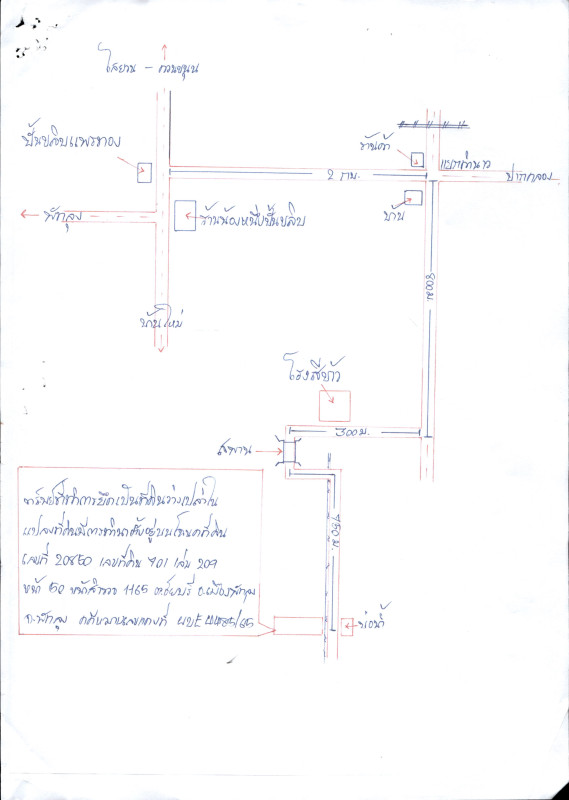 โคยาน - ควนขนุน
ปั๊มขลิบแพรทอง
ร้านค้า
แยกท่านาว
2 กม.
ปากคลอง
บ้าน
พัทลุง
ร้านน้องหนึ่งปั๊มขลิบ
800ม.
บ้านใหม่
โรงสีข้าว
300 ม.
สะพาน
750 ม.
ทรัพย์ที่ทำการยึดเป็นที่ดินว่างเปล่าใน
แปลงที่ดินมีการทำนาตั้งอยู่บนโฉนดที่ดิน
เลขที่ 20850 เลขที่ดิน 701 เล่ม 209
หน้า 50 หน้าสำรวจ 1165 ต.ชัยบุรี อ.เมืองพัทลุง
จ.พัทลุง คดีหมายเลขแดงที่
บ่อน้ำ